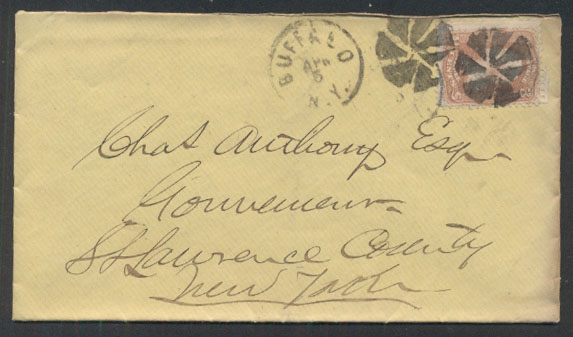 BUFFALO
APR
5
N.Y.
Chas Anthony Esq
Gouverneur
St Lawrence County
New York